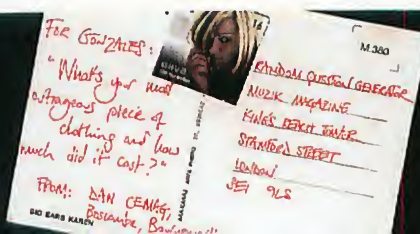 FOR GONZALES:
"What's your most
outrageous piece of
clothing and how
much did it cost?"
FROM: DAN
Boscombe,
BIG EARS KAREN
M.380
RANDOM QUESTION GENERATOR
MUZIK MAGAZINE
KING'S REACH TOWER
STAMFORD STREET
LONDON
SE1 9LS